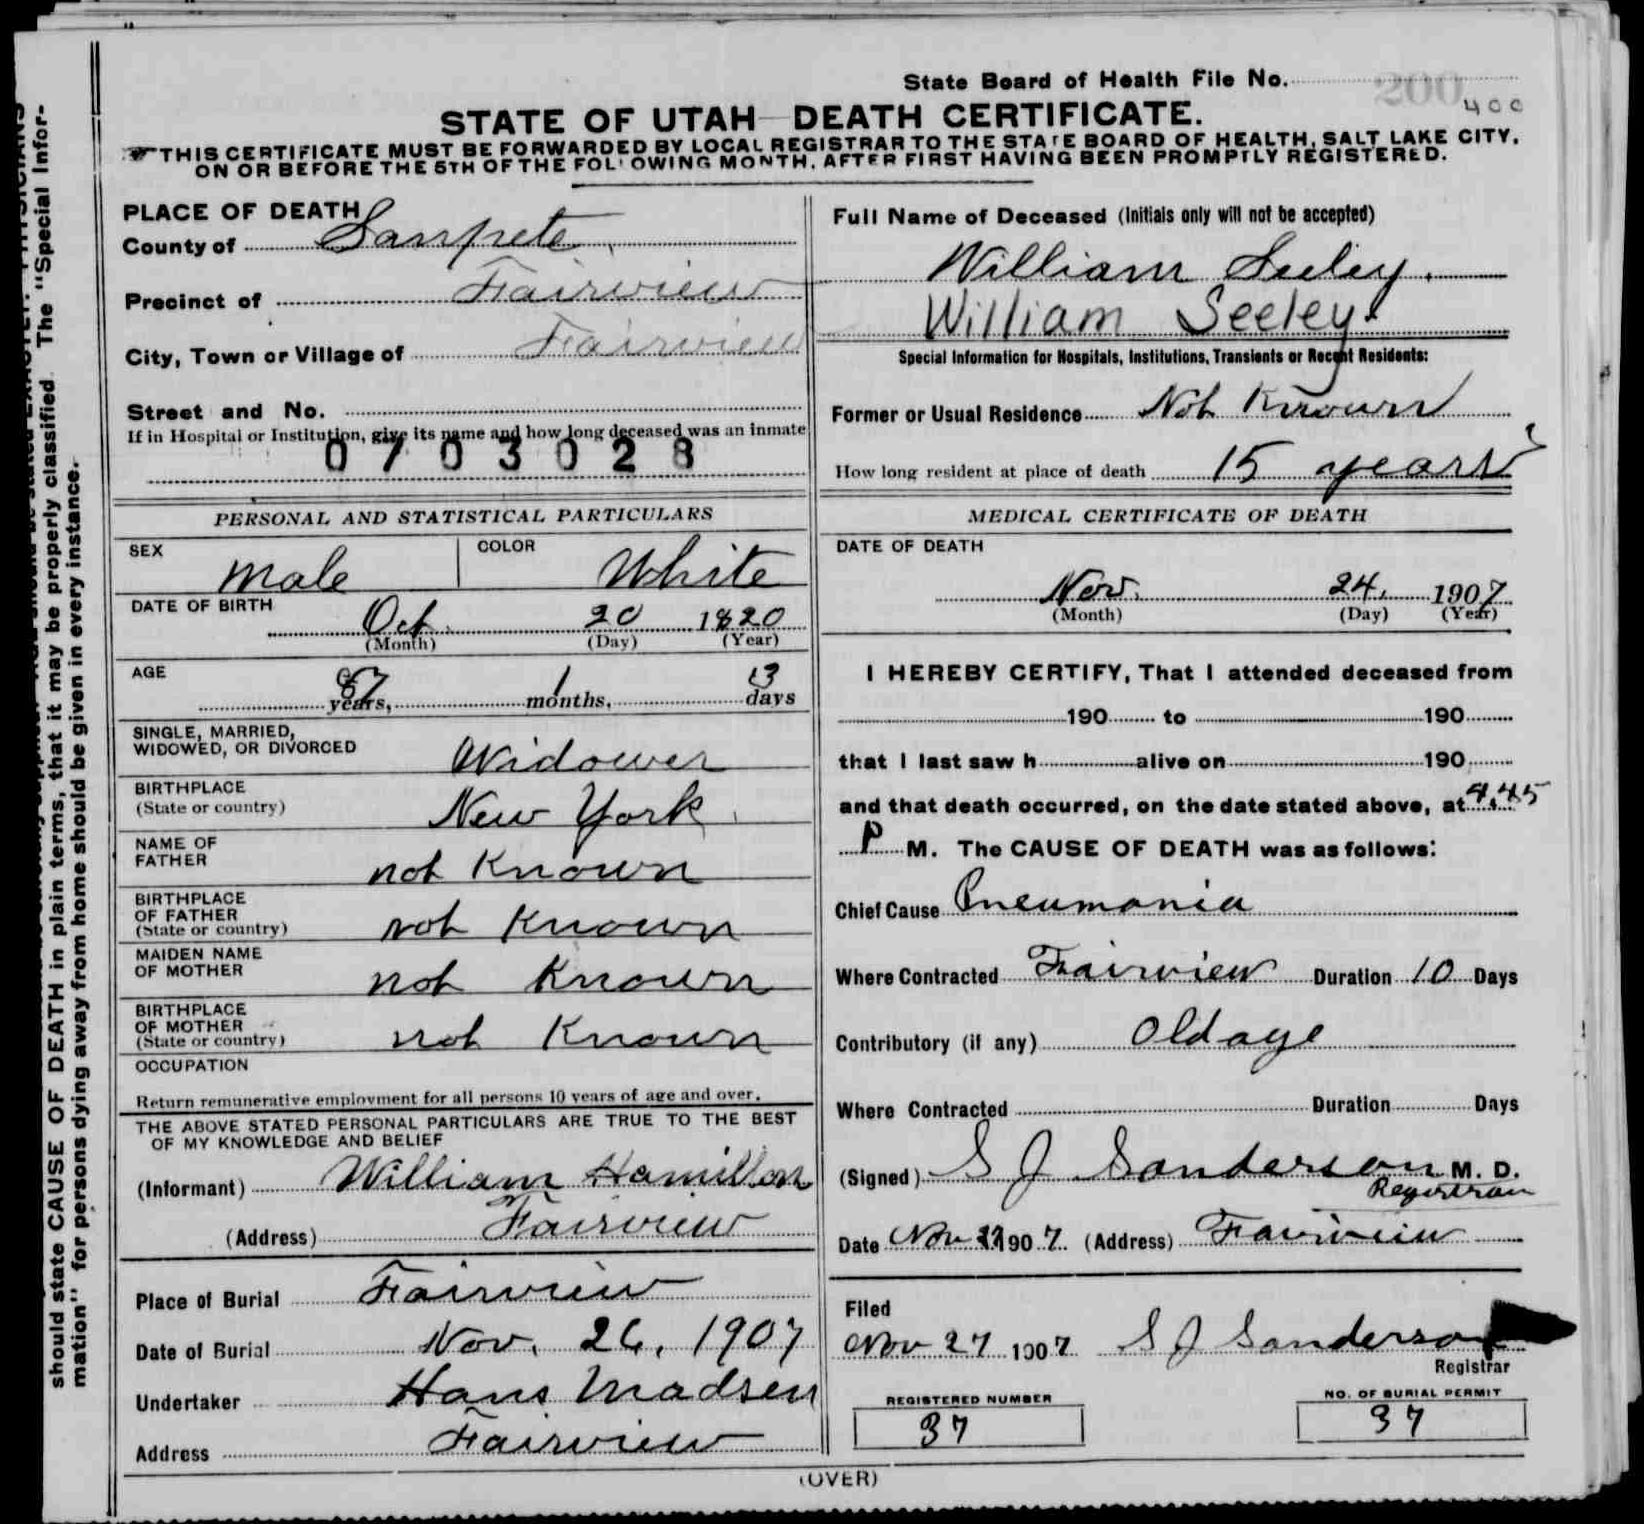 State Board of Health File No. 200
400
STATE OF UTAH DEATH CERTIFICATE.
THIS CERTIFICATE MUST BE FORWARDED BY LOCAL REGISTRAR TO THE STATE BOARD OF HEALTH, SALT LAKE CITY,
ON OR BEFORE THE 5TH OF THE FOLLOWING MONTH, AFTER FIRST HAVING BEEN PROMPTLY REGISTERED.
PLACE OF DEATH
County of Sanpete
Precinct of Fairview
City, Town or Village of Fairview
Street and No.
If in Hospital or Institution, give its name and how long deceased was an inmate
0703028
PERSONAL AND STATISTICAL PARTICULARS
SEX Male COLOR White
DATE OF BIRTH Oct. 20 1820
(Month) (Day) (Year)
AGE 87 years, 1 months, 3 days
SINGLE, MARRIED,
WIDOWED, OR DIVORCED Widower
BIRTHPLACE
(State or country) New York.
NAME OF
FATHER not Known
BIRTHPLACE
OF FATHER
(State or country) not Known
MAIDEN NAME
OF MOTHER not Known
BIRTHPLACE
OF MOTHER
(State or country) not Known
OCCUPATION
Return remunerative employment for all persons 10 years of age and over.
THE ABOVE STATED PERSONAL PARTICULARS ARE TRUE TO THE BEST
OF MY KNOWLEDGE AND BELIEF
(Informant) William Hamilton
(Address) Fairview
Place of Burial Fairview
Date of Burial Nov. 26, 1907
Undertaker Hans Madsen
Address Fairview
Full Name of Deceased (Initials only will not be accepted)
William Seeley.
William Seeley.
Special Information for Hospitals, Institutions, Transients or Recent Residents:
Former or Usual Residence Not Known
How long resident at place of death 15 years
MEDICAL CERTIFICATE OF DEATH
DATE OF DEATH
Nov. 24, 1907
(Month) (Day) (Year)
I HEREBY CERTIFY, That I attended deceased from
190 to 190
that I last saw h alive on 190
and that death occurred, on the date stated above, at 4.45
P M. The CAUSE OF DEATH was as follows:
Chief Cause Pneumonia
Where Contracted Fairview Duration 10 Days
Contributory (if any) Old age
Where Contracted Duration Days
(Signed) S J Sanderson M. D.
Registrar
Date Nov 27 1907. (Address) Fairview
Filed
Nov 27 1907 S J Sanderson
Registrar
REGISTERED NUMBER
37
NO. OF BURIAL PERMIT
37
(OVER)
should state CAUSE OF DEATH in plain terms, that it may be properly classified The "Special Infor-
mation" for persons dying away from home should be given in every instance.